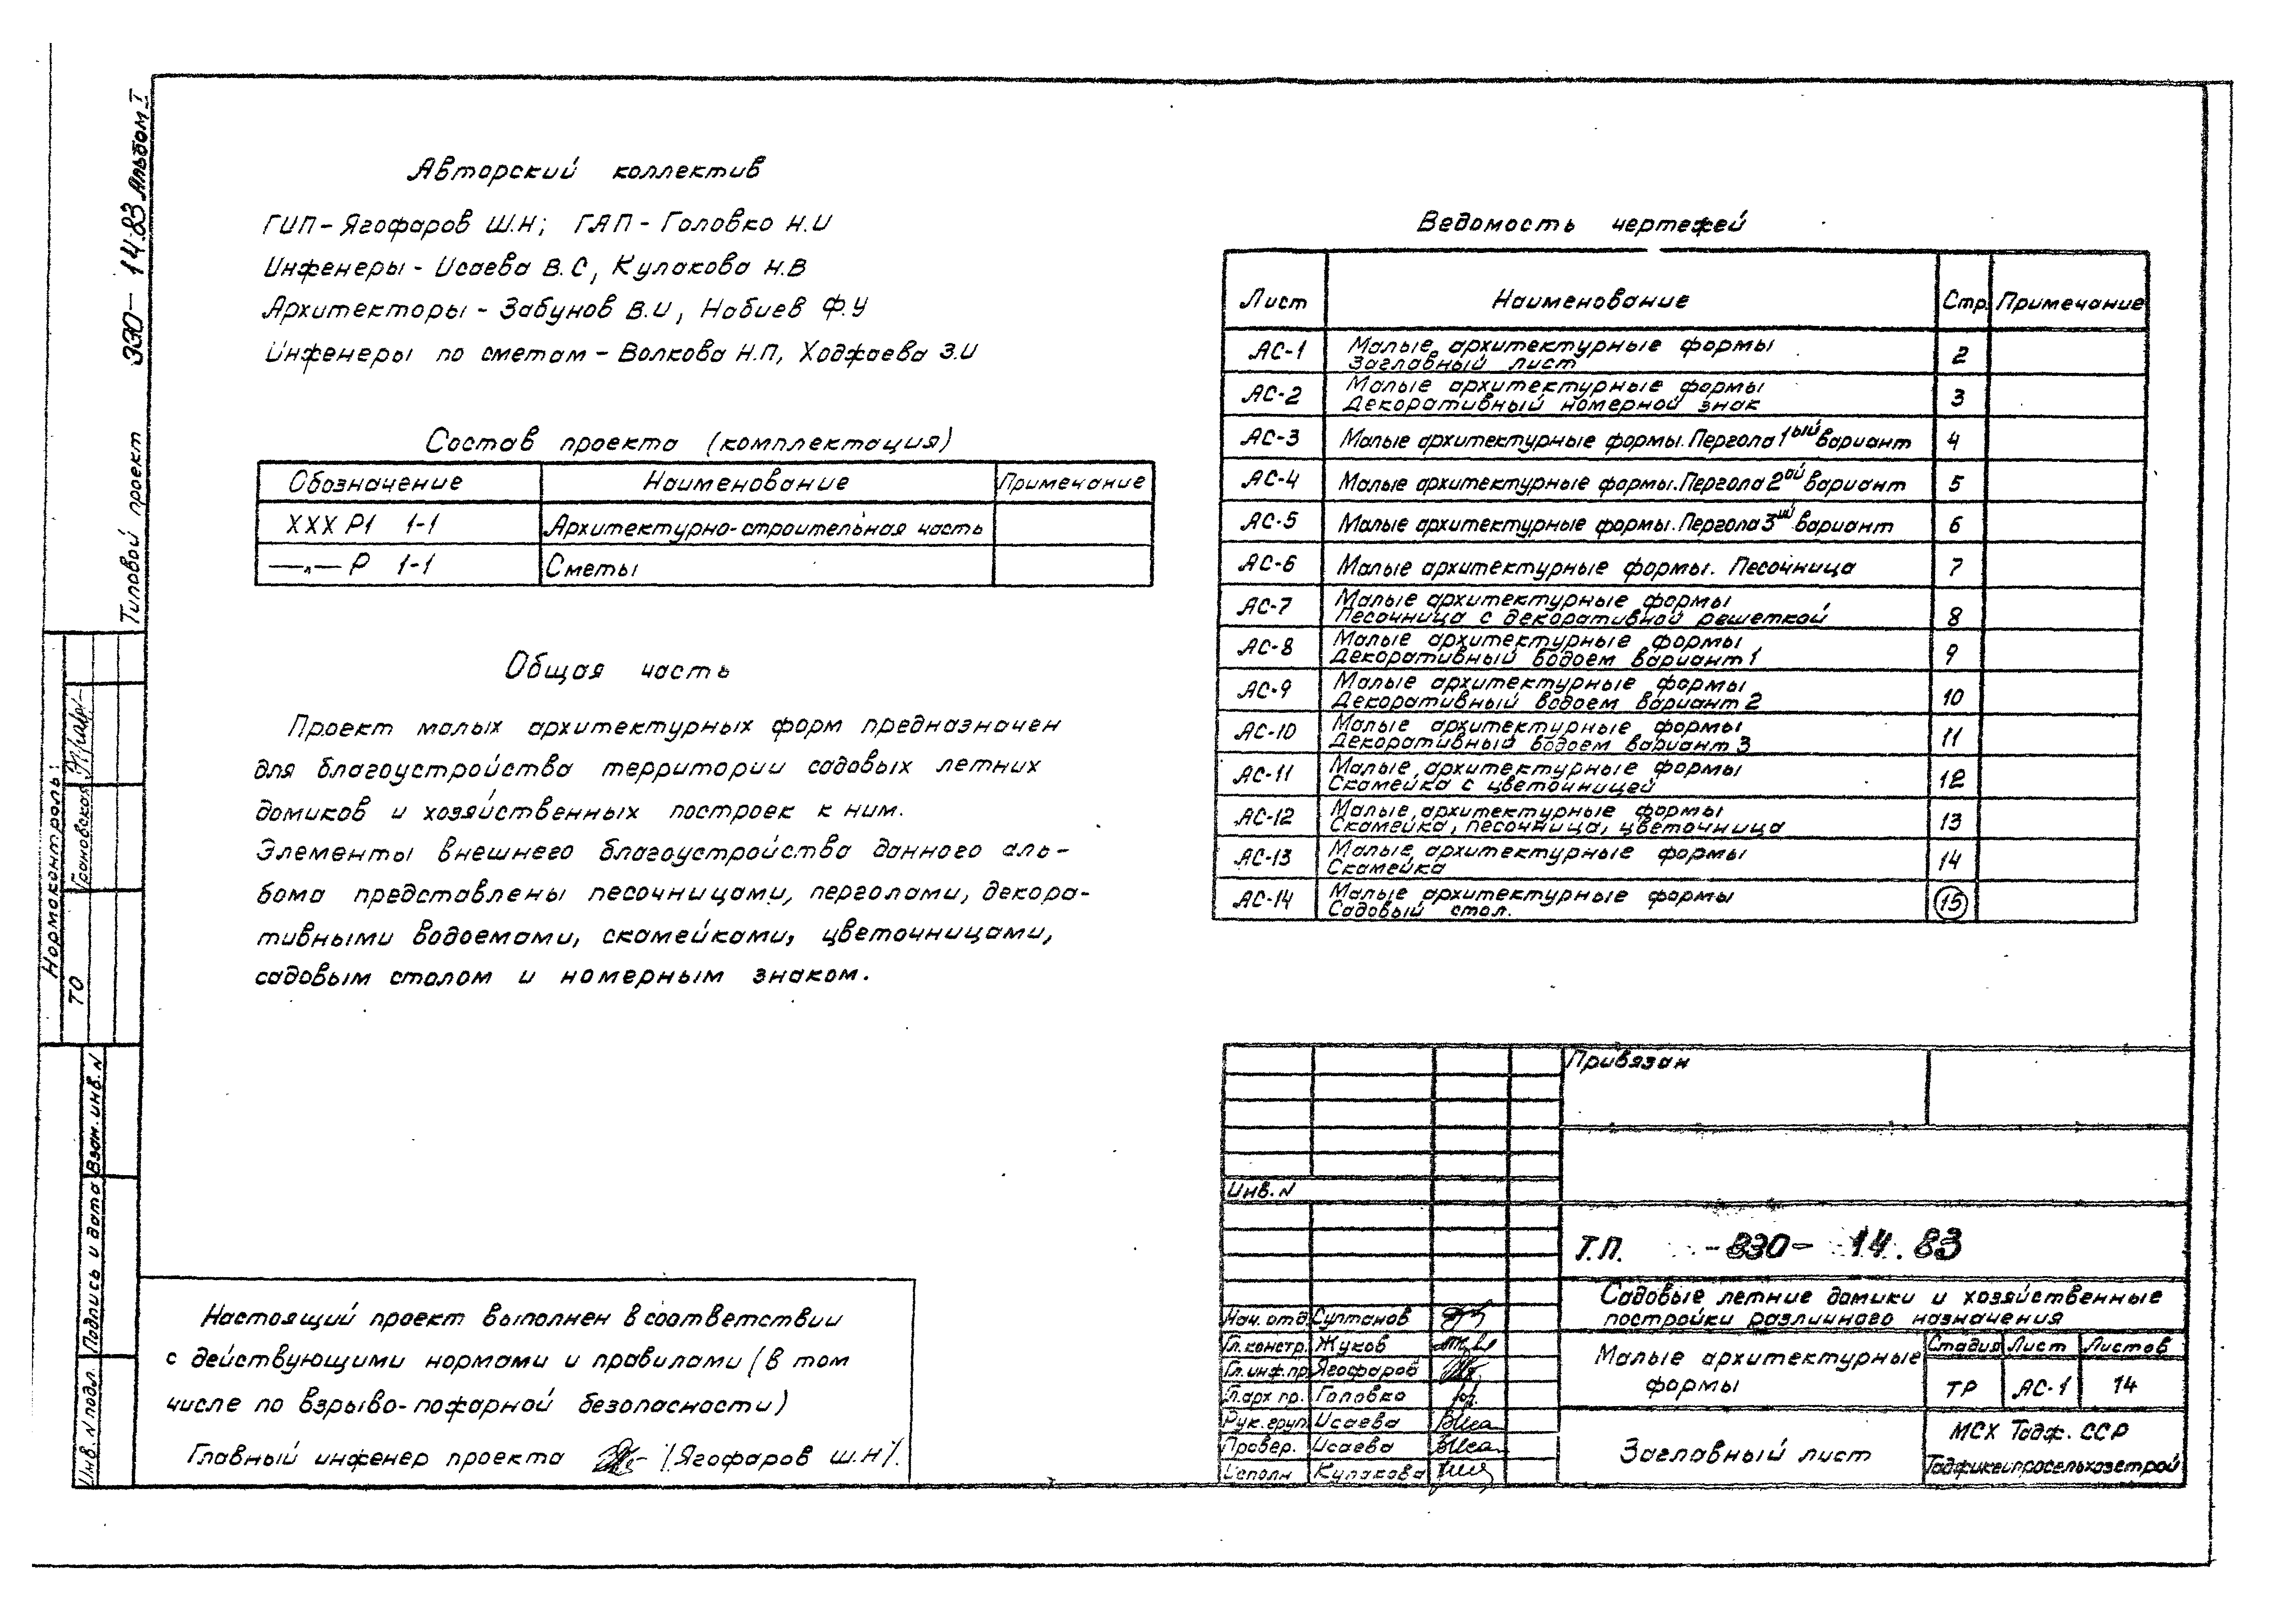 Типовой проект 330-14.83 Альбом I
Авторский коллектив
ГИП - Ягофаров Ш.Н; ГАП - Головко Н.И
Инженеры - Исаева В.С, Кулакова Н.В
Архитекторы - Забунов В.И, Набиев Ф.У
Инженеры по сметам - Волкова Н.П, Ходжаева З.И
Состав проекта (комплектация)
Обозначение Наименование Примечание
XXX Р1 1-1 Архитектурно-строительная часть
—„— Р 1-1 Сметы
Общая часть
Проект малых архитектурных форм предназначен
для благоустройства территории садовых летних
домиков и хозяйственных построек к ним.
Элементы внешнего благоустройства данного аль-
бома представлены песочницами, перголами, декора-
тивными водоемами, скамейками, цветочницами,
садовым столом и номерным знаком.
Настоящий проект выполнен в соответствии
с действующими нормами и правилами (в том
числе по взрыво-пожарной безопасности)
Главный инженер проекта /Ягофаров Ш.Н/.
Ведомость чертежей
Лист Наименование Стр. Примечание
АС-1 Малые архитектурные формы
Заглавный лист 2
АС-2 Малые архитектурные формы
Декоративный номерной знак 3
АС-3 Малые архитектурные формы. Пергола 1ый вариант 4
АС-4 Малые архитектурные формы. Пергола 2ой вариант 5
АС-5 Малые архитектурные формы. Пергола 3ий вариант 6
АС-6 Малые архитектурные формы. Песочница 7
АС-7 Малые архитектурные формы
Песочница с декоративной решеткой 8
АС-8 Малые архитектурные формы
Декоративный водоем вариант 1 9
АС-9 Малые архитектурные формы
Декоративный водоем вариант 2 10
АС-10 Малые архитектурные формы
Декоративный водоем вариант 3 11
АС-11 Малые архитектурные формы
Скамейка с цветочницей 12
АС-12 Малые архитектурные формы
Скамейка, песочница, цветочница 13
АС-13 Малые архитектурные формы
Скамейка 14
АС-14 Малые архитектурные формы
Садовый стол. 15
Привязан
Инв. N
Т.П. -330- 14.83
Садовые летние домики и хозяйственные
постройки различного назначения
Нач. отд. Султанов
Гл. констр. Жуков
Гл. инж. пр. Ягофаров
Гл. арх пр. Головко
Рук. груп. Исаева
Провер. Исаева
Исполн Кулакова
Малые архитектурные
формы
Стадия Лист Листов
ТР АС-1 14
Заглавный лист
МСХ Тадж. ССР
Таджикгипросельхозстрой
Нормоконтроль:
ТО Грановская
Взам. инв. N
Подпись и дата
Инв. N подл.